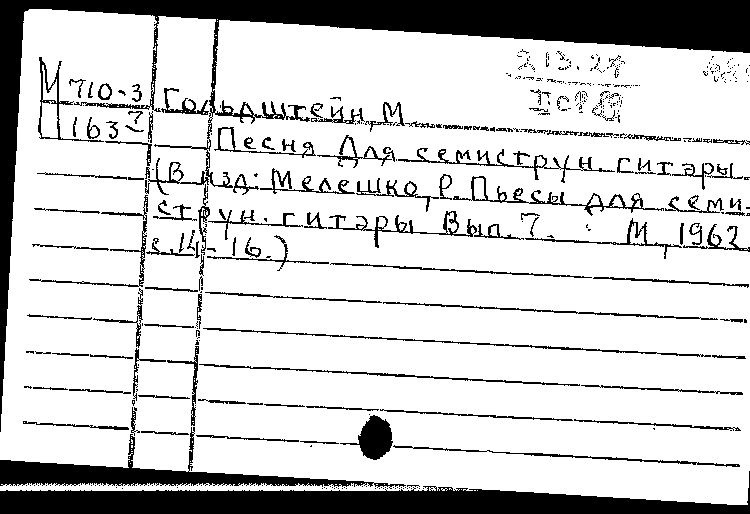 213.27
М 710-3
163 7
Гольдштейн, М
Песня для семиструн. гитары
(В изд: Мелешко, Р. Пьесы для семи-
струн. гитары. Вып. 7. М, 1962
с. 14-16.)